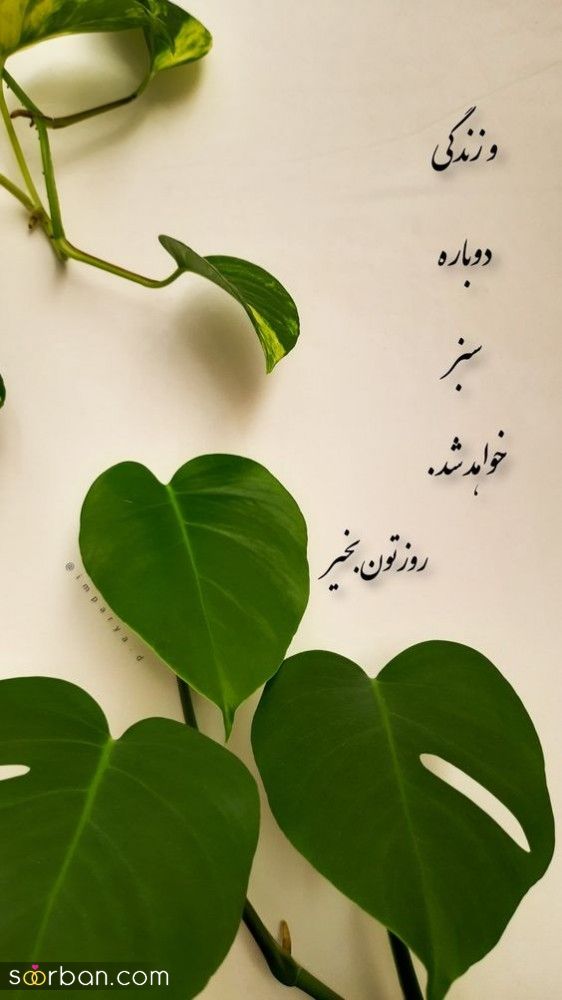 و زندگی
دوباره
سبز
خواهد شد.
روزتون بخیر
@imparya.d
soorban.com